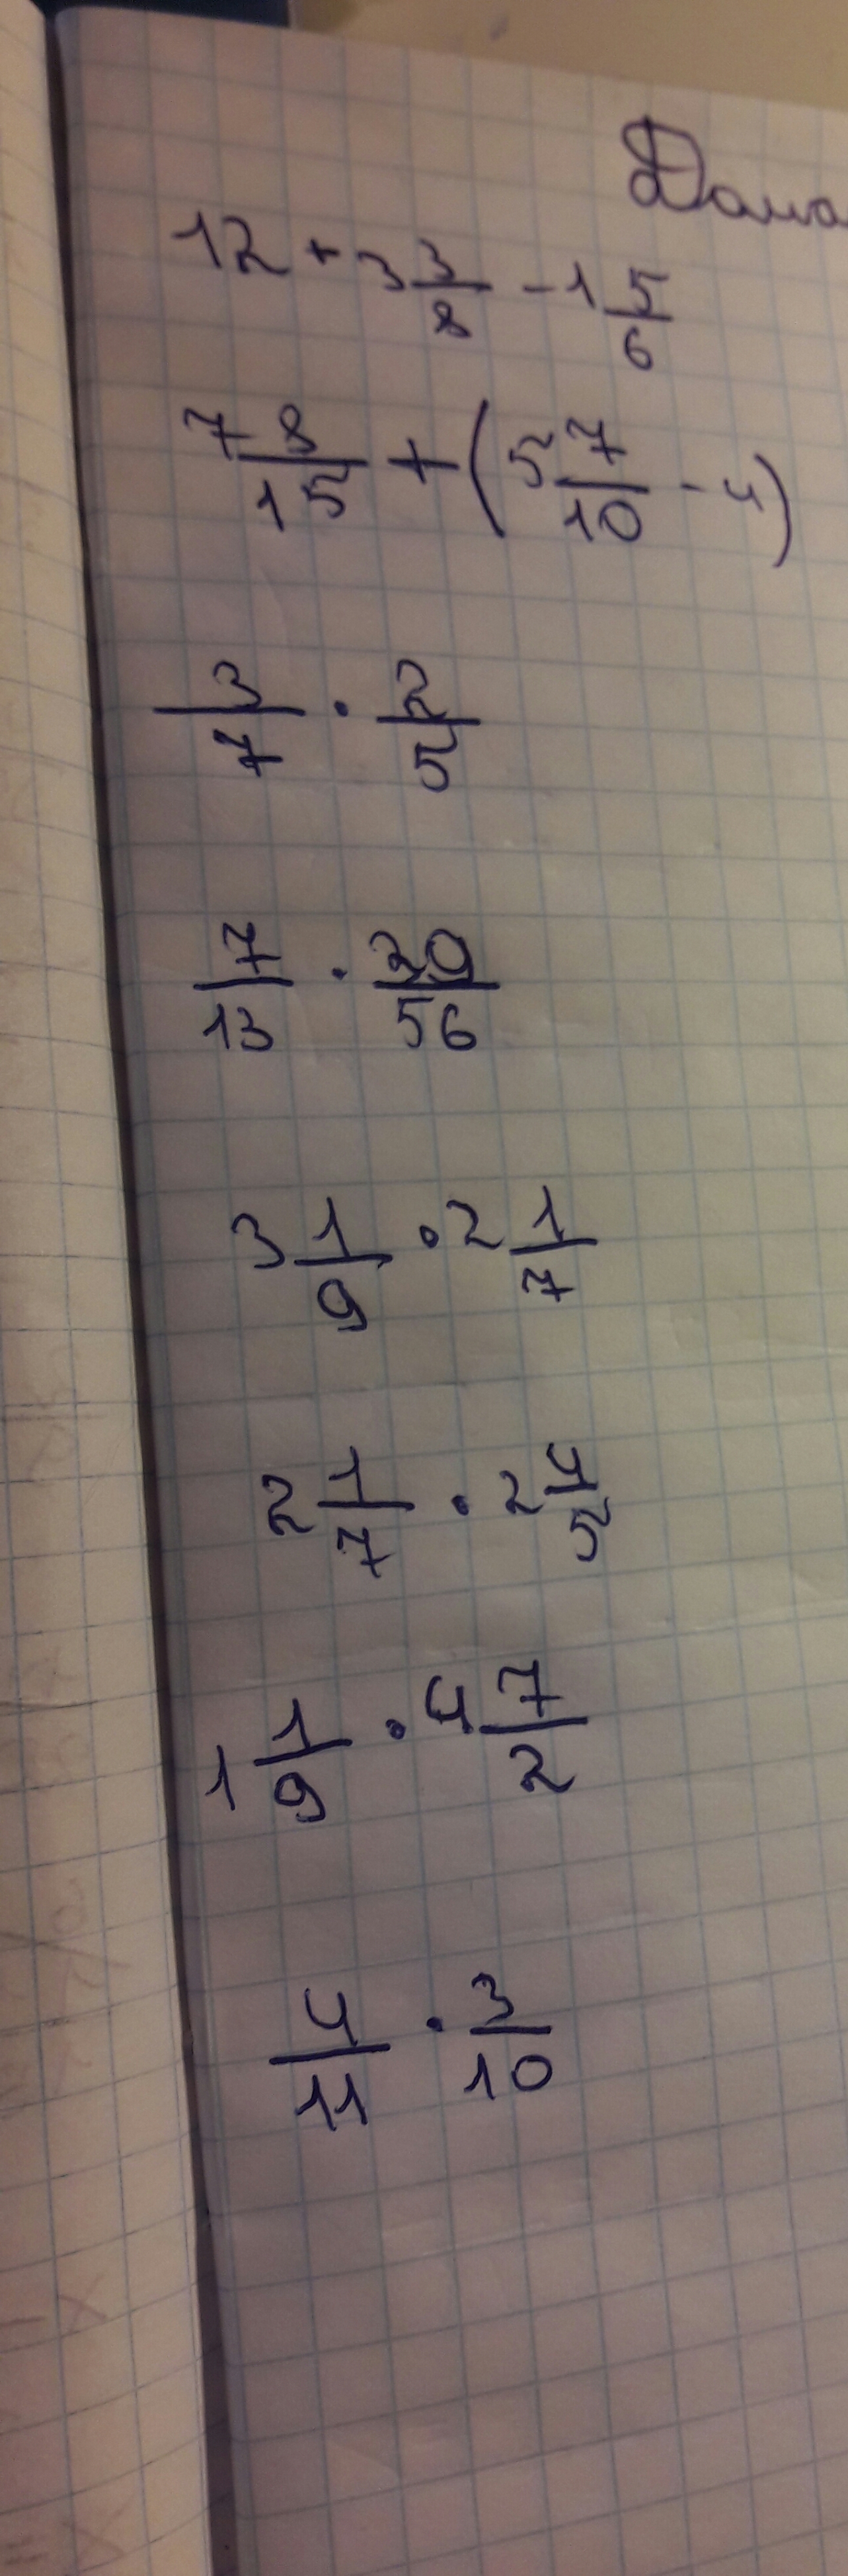 Дома
12 + 3 3/8 - 1 5/6
7 8/15 + (5 7/10 - 4)
3/7 · 2/5
7/13 · 39/56
3 1/9 · 2 1/7
2 1/7 · 2 4/5
1 1/9 · 4 7/2
4/11 · 3/10